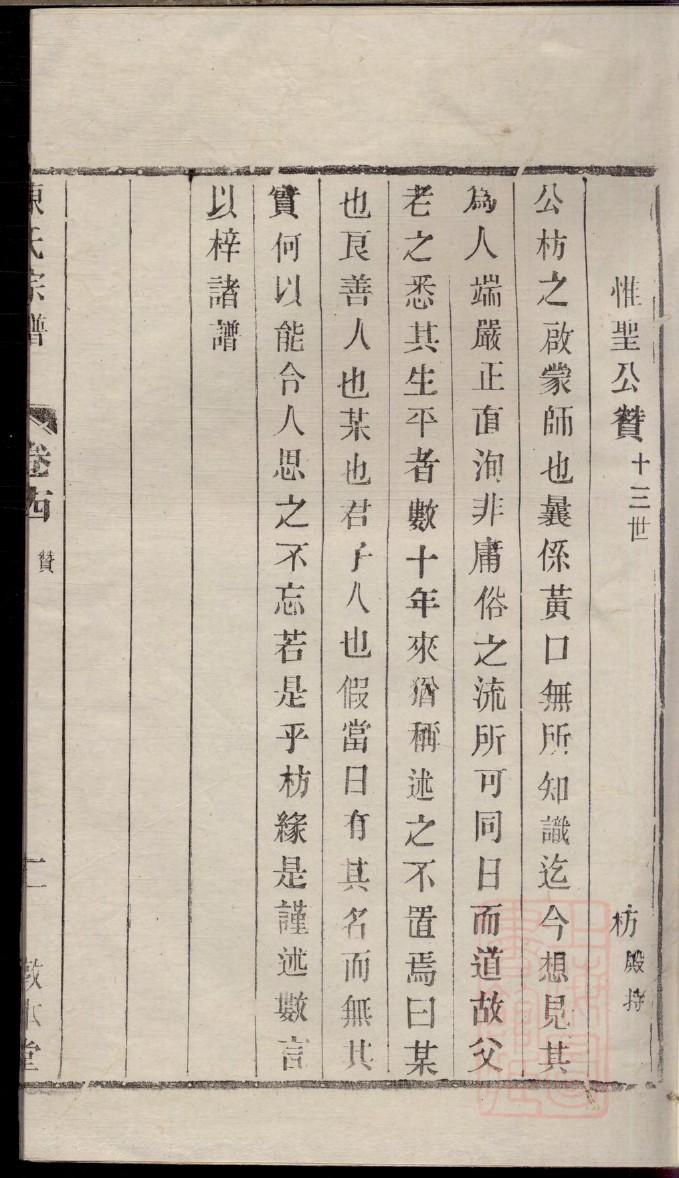 惟聖公贊十三世 枋殿持
公枋之啟蒙師也曩係黃口無所知識迄今想見其
為人端嚴正直洵非庸俗之流所可同日而道故父
老之悉其生平者數十年來猶稱述之不置焉曰某
也良善人也某也君子人也假當日有其名而無其
實何以能令人思之不忘若是乎枋緣是謹述數言
以梓諸譜
陳氏宗譜 卷四 贊 二 敦本堂